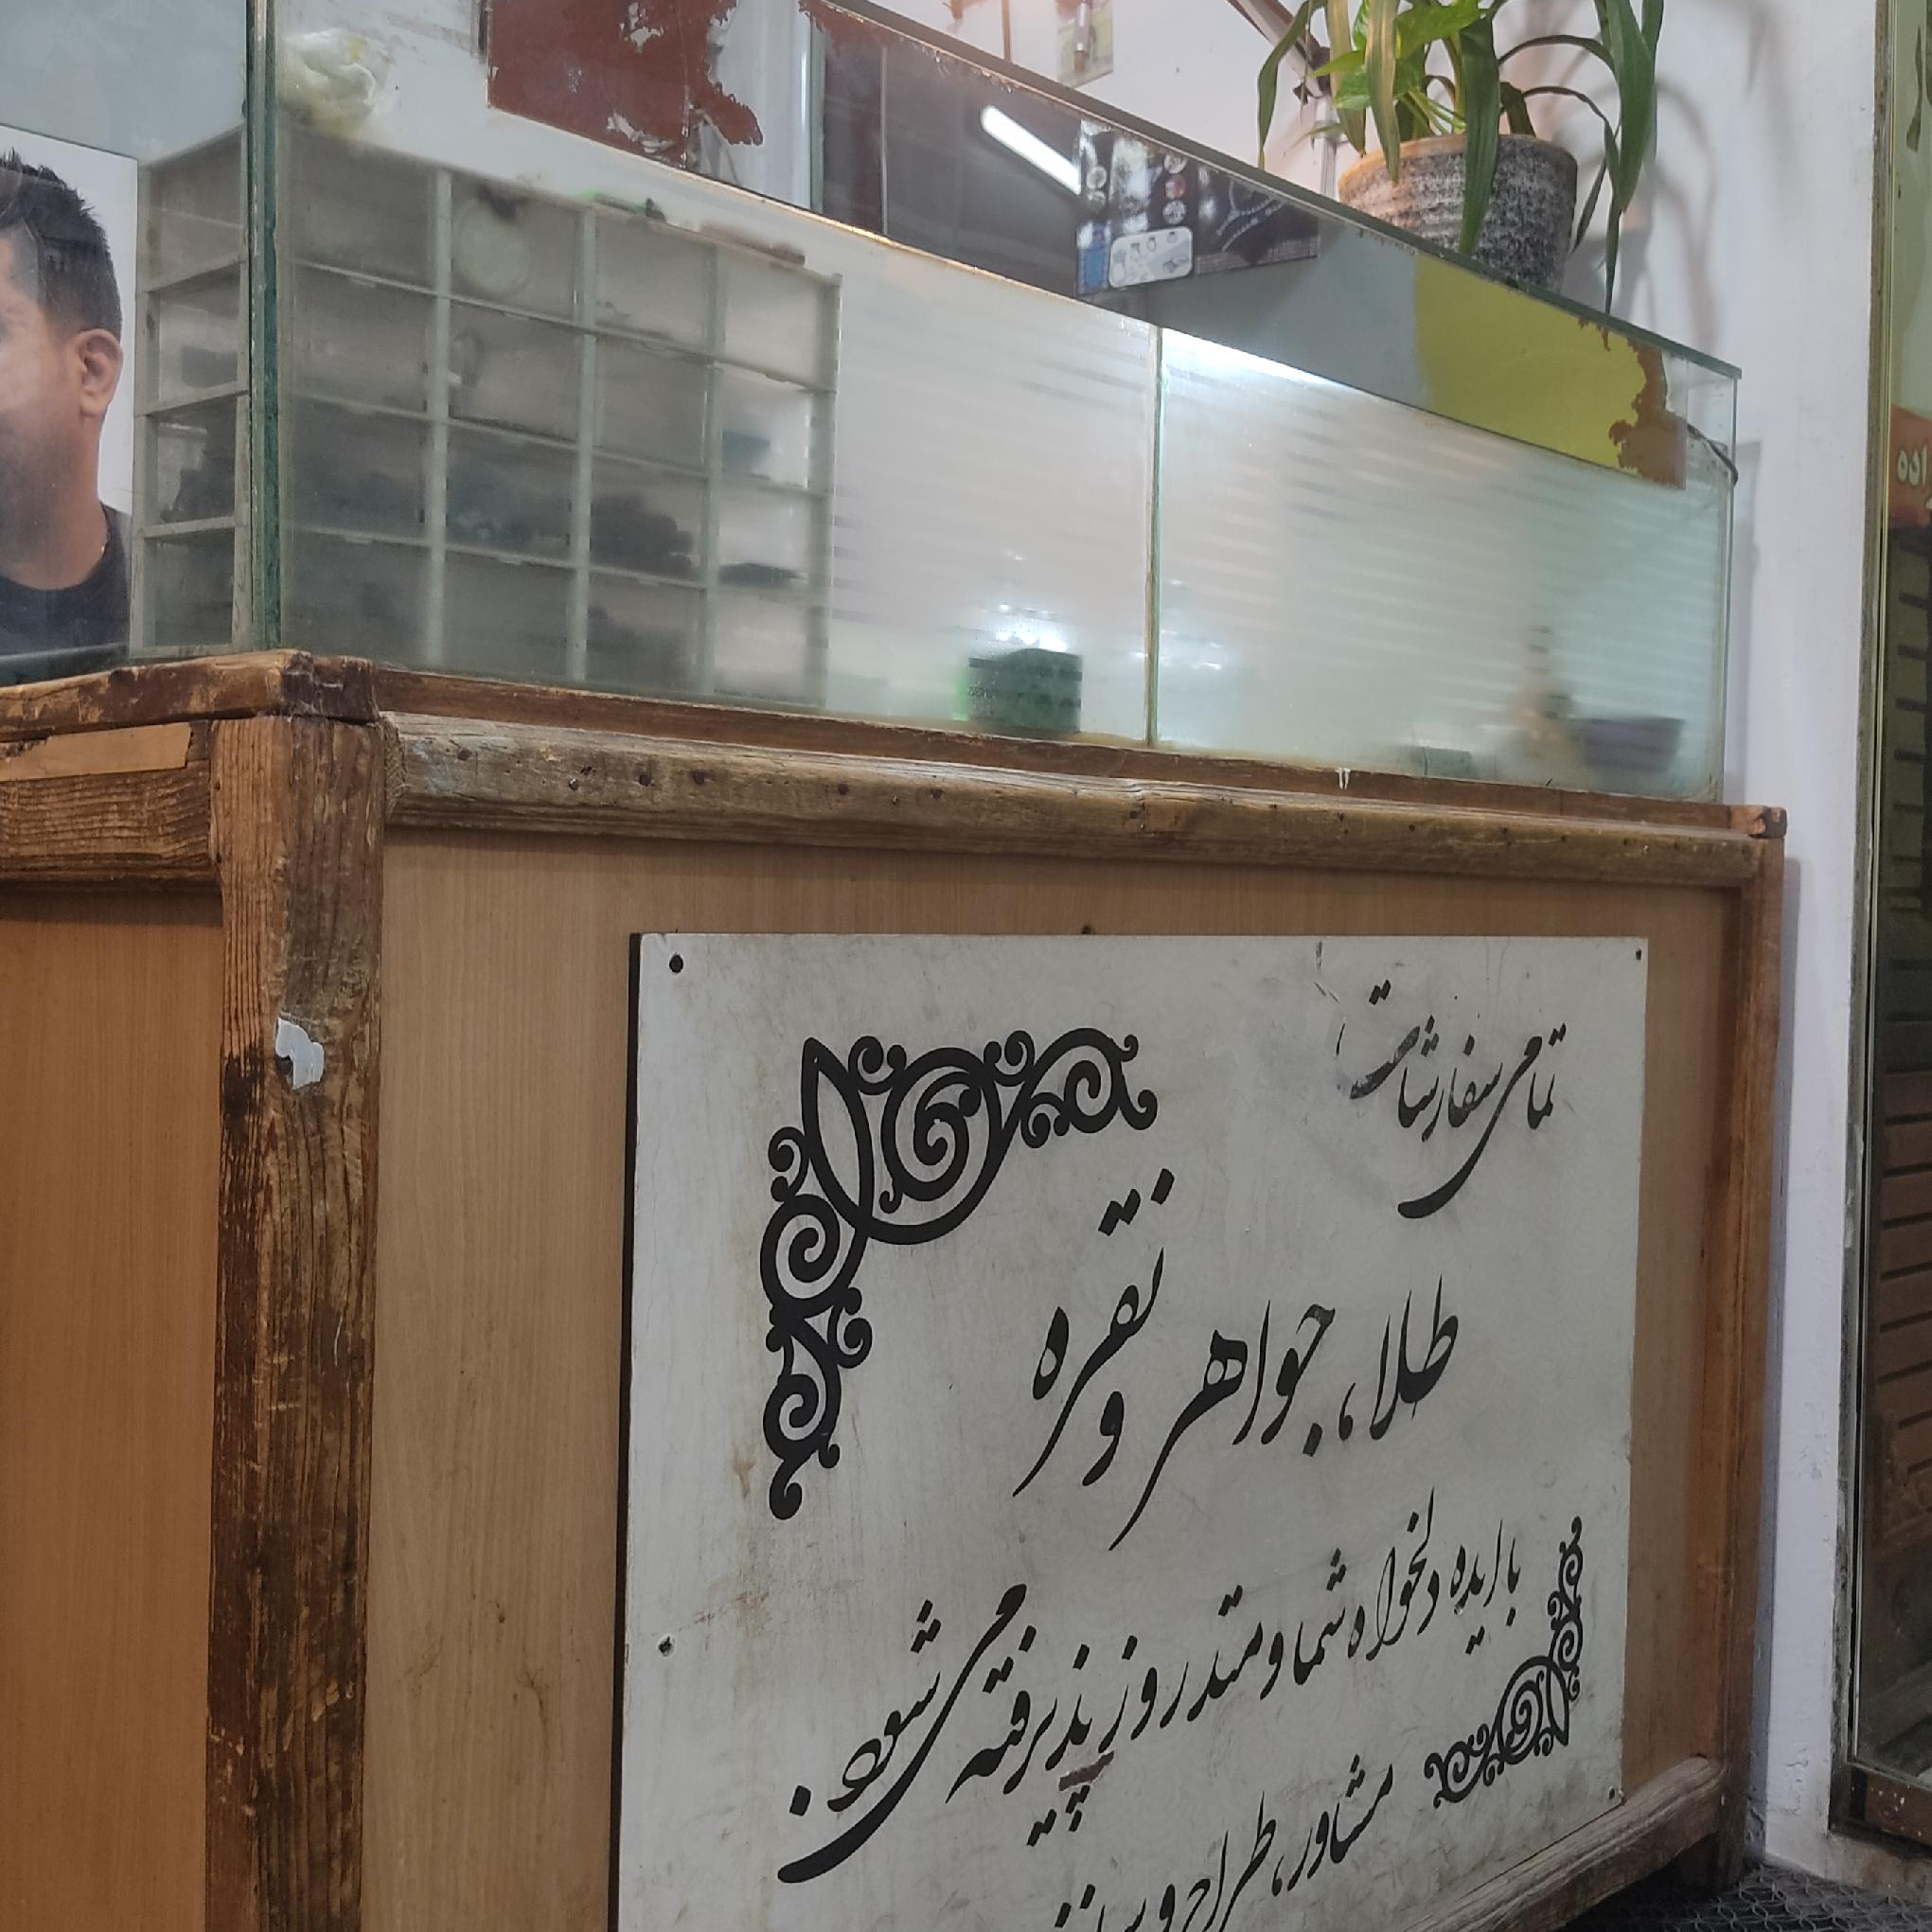 تمامی سفارشات
طلا، جواهر و نقره
با ایده دلخواه شما و متد روز پذیرفته می شود.
مشاور، طراح و